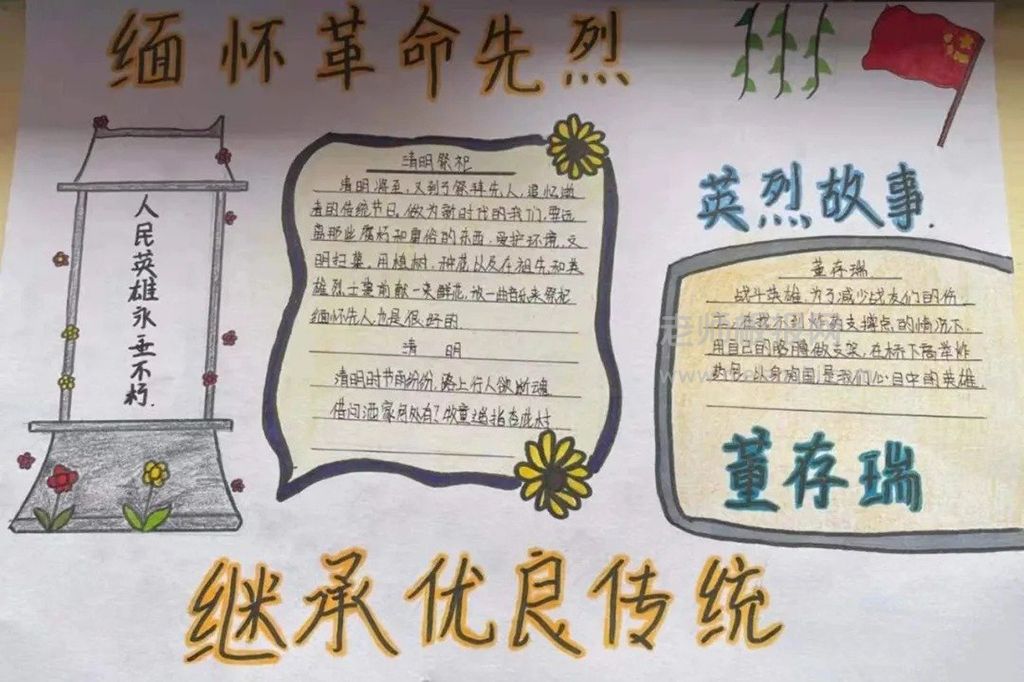 缅怀革命先烈
人民英雄永垂不朽.
清明祭祀
清明将至,又到了祭拜先人,追忆
清明传统节日,做为新时代的我们,要远
离那些腐朽和庸俗的东西,爱护环境,文
明扫墓,用植树,种花以及在祖先和英
雄烈士墓前献一束鲜花,放一曲音乐来祭祀
缅怀先人,力是很好的.
清 明
清明时节雨纷纷,路上行人欲断魂
借问酒家何处有?牧童遥指杏花村
英烈故事.
董存瑞
战斗英雄,为了减少战友们的伤
支撑点的情况下.
用自己的胳膊做支架,在桥下高举炸
药包,以身殉国,是我们心目中的英雄.
董存瑞
继承优良传统